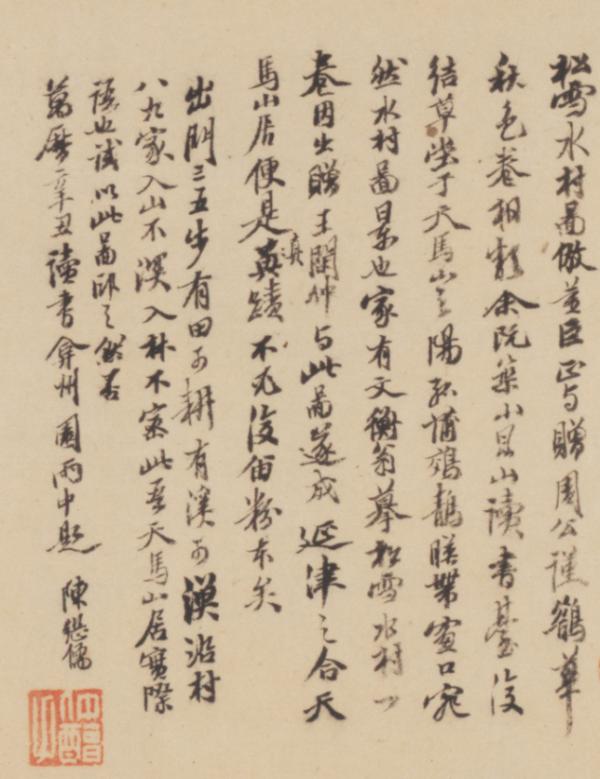 松雪水村圖倣董巨正与贈周公謹鵲華
秋色卷相類余既築小昆山讀書臺復
結草堂于天馬山之陽菰蒲鵁鶄帶宛
然水村圖景也家有文衡翁摹松雪水村一
卷因出贈王閏仲与此圖遂成延津之合天
馬山居便是真蹟不必復留粉本矣
出門三五步有田可耕有溪可漁沿村
八九家入山不深入林不密此吾天馬山居實際
語也試以此圖印之然否
萬曆辛丑讀書弇州園雨中題 陳繼儒